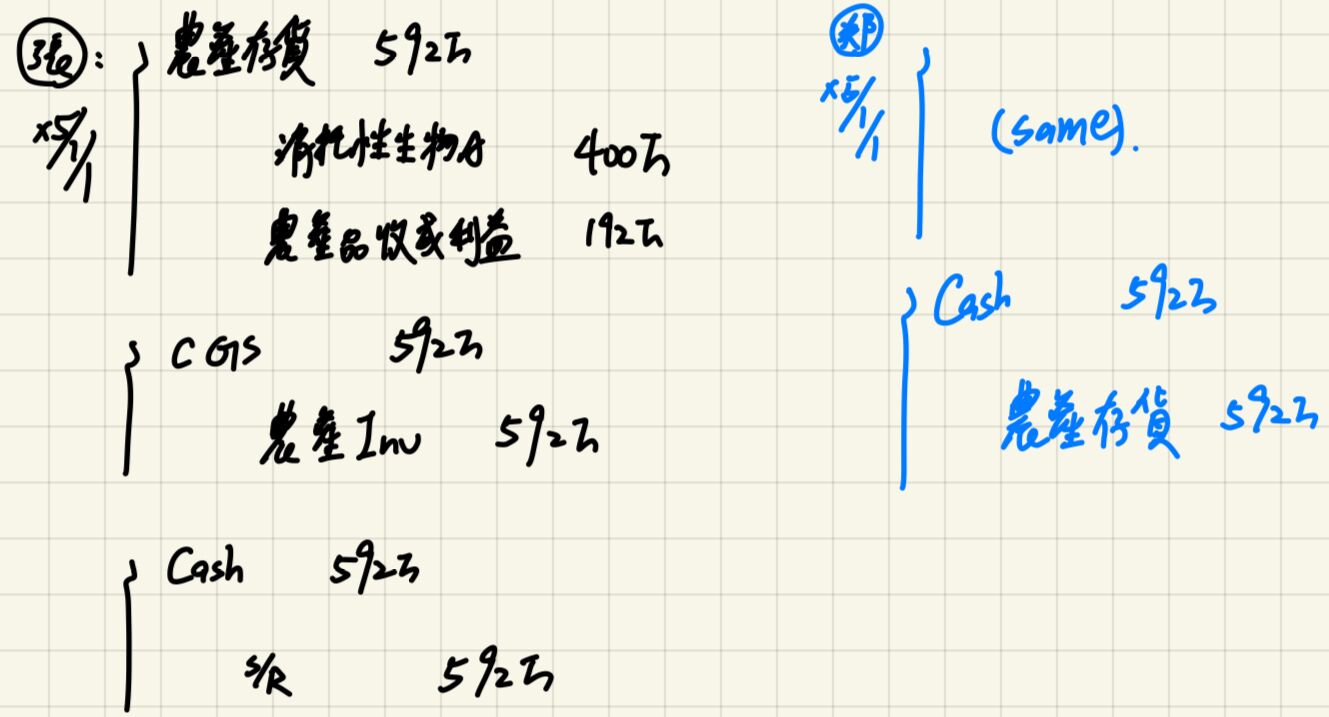 張：
X5/1/1
農產存貨 592万
消耗性生物A 400万
農產品收成利益 192万
CGS 592万
農產Inv 592万
Cash 592万
S/R 592万
鄭
X5/1/1
(same).
Cash 592万
農產存貨 592万